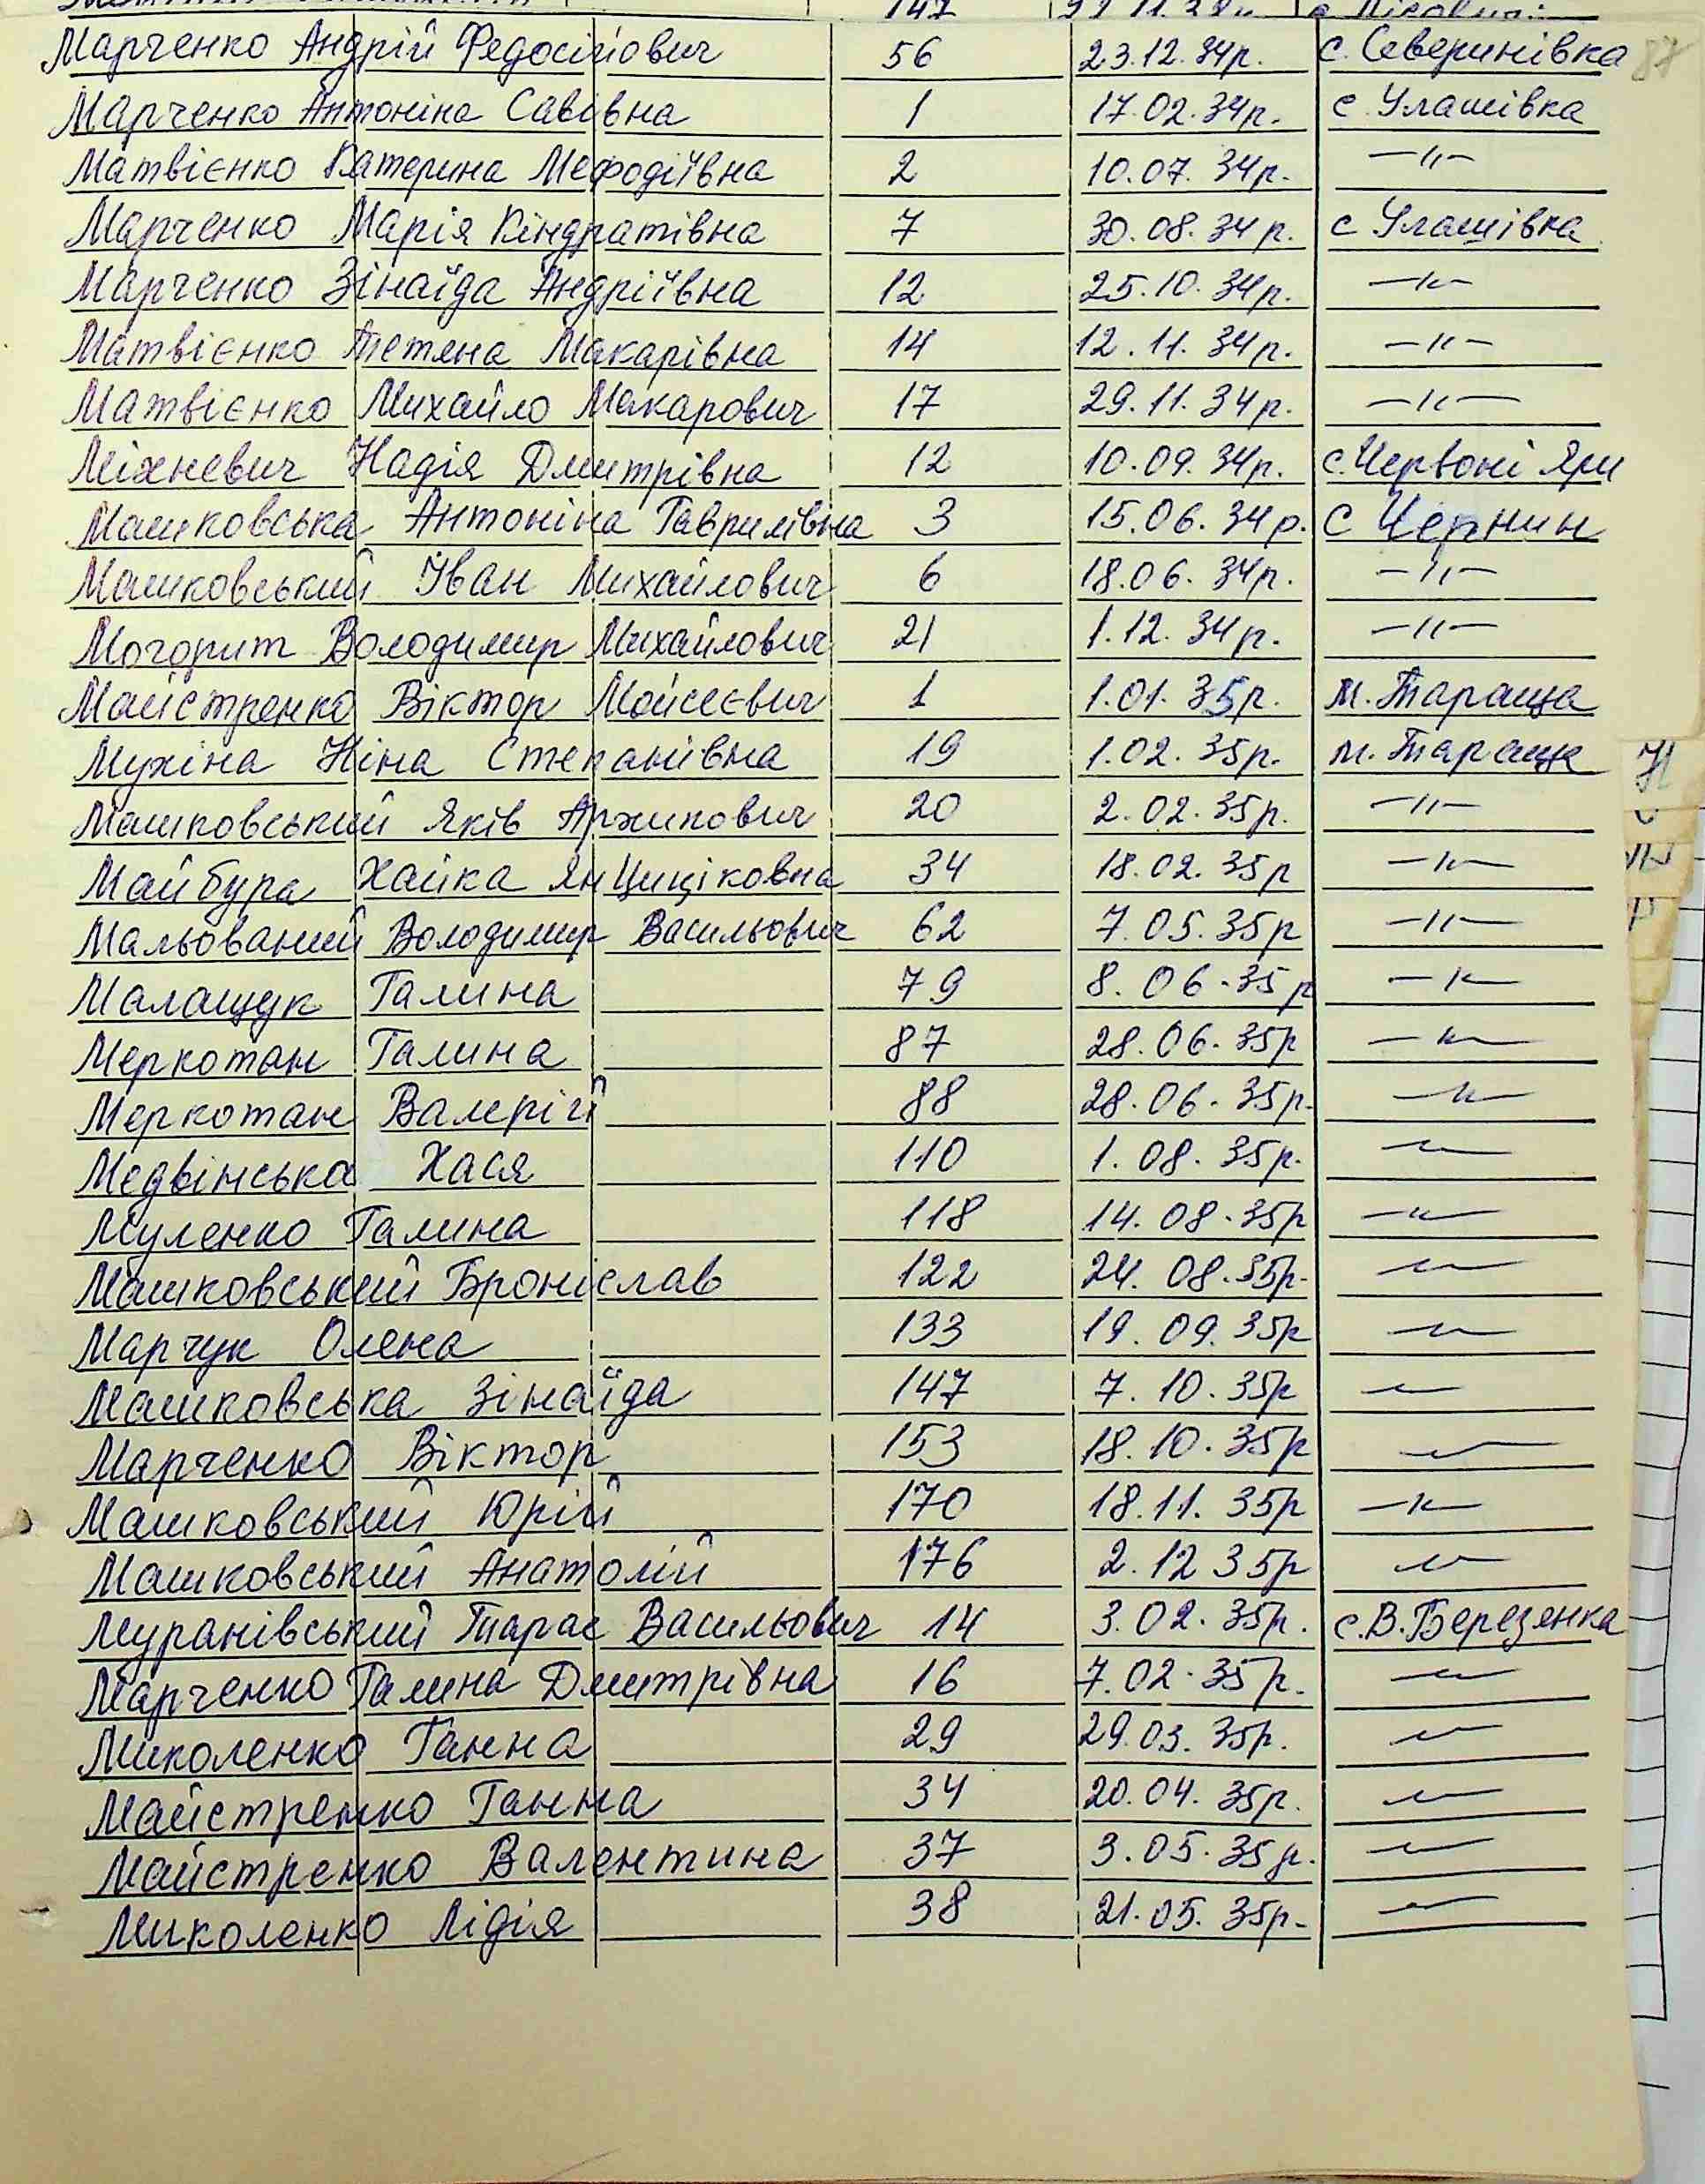 147
Марченко Андрій Федосійович 56 23.12.34р. с. Северинівка 87
Марченко Антоніна Савівна 1 17.02.34р. с Улашівка
Матвієнко Катерина Мефодіївна 2 10.07.34р. —"—
Марченко Марія Кіндратівна 7 30.08.34р. с Улашівка
Марченко Зінаїда Андріївна 12 25.10.34р. —"—
Матвієнко Тетяна Макарівна 14 12.11.34р. —"—
Матвієнко Михайло Макарович 17 29.11.34р. —"—
Міхневич Надія Дмитрівна 12 10.09.34р. с.Червоні Яри
Машковська Антоніна Гаврилівна 3 15.06.34р. с Чернин
Машковський Іван Михайлович 6 18.06.34р. —"—
Могорит Володимир Михайлович 21 1.12.34р. —"—
Майстренко Віктор Мойсеєвич 1 1.01.35р. м.Тараща
Мухіна Ніна Степанівна 19 1.02.35р. м.Тараща Н
Машковський Яків Архипович 20 2.02.35р. —"—
Майбура Хайка Янциціковна 34 18.02.35р —"—
Мальований Володимир Васильович 62 7.05.35р —"—
Малащук Галина 79 8.06.35р —"—
Меркотан Галина 87 28.06.35р —"—
Меркотан Валерій 88 28.06.35р. —"—
Медвінська Хася 110 1.08.35р. —"—
Муленко Галина 118 14.08.35р —"—
Машковський Броніслав 122 24.08.35р. —"—
Марчук Олена 133 19.09.35р —"—
Машковська Зінаїда 147 7.10.35р —"—
Марченко Віктор 153 18.10.35р —"—
Машковський Юрій 170 18.11.35р —"—
Машковський Анатолій 176 2.12 35р —"—
Муранівський Тарас Васильович 14 3.02.35р. с.В.Березянка
Марченко Галина Дмитрівна 16 7.02.35р. —"—
Миколенко Ганна 29 29.03.35р. —"—
Майстренко Ганна 34 20.04.35р. —"—
Майстренко Валентина 37 3.05.35р. —"—
Миколенко Лідія 38 21.05.35р. —"—